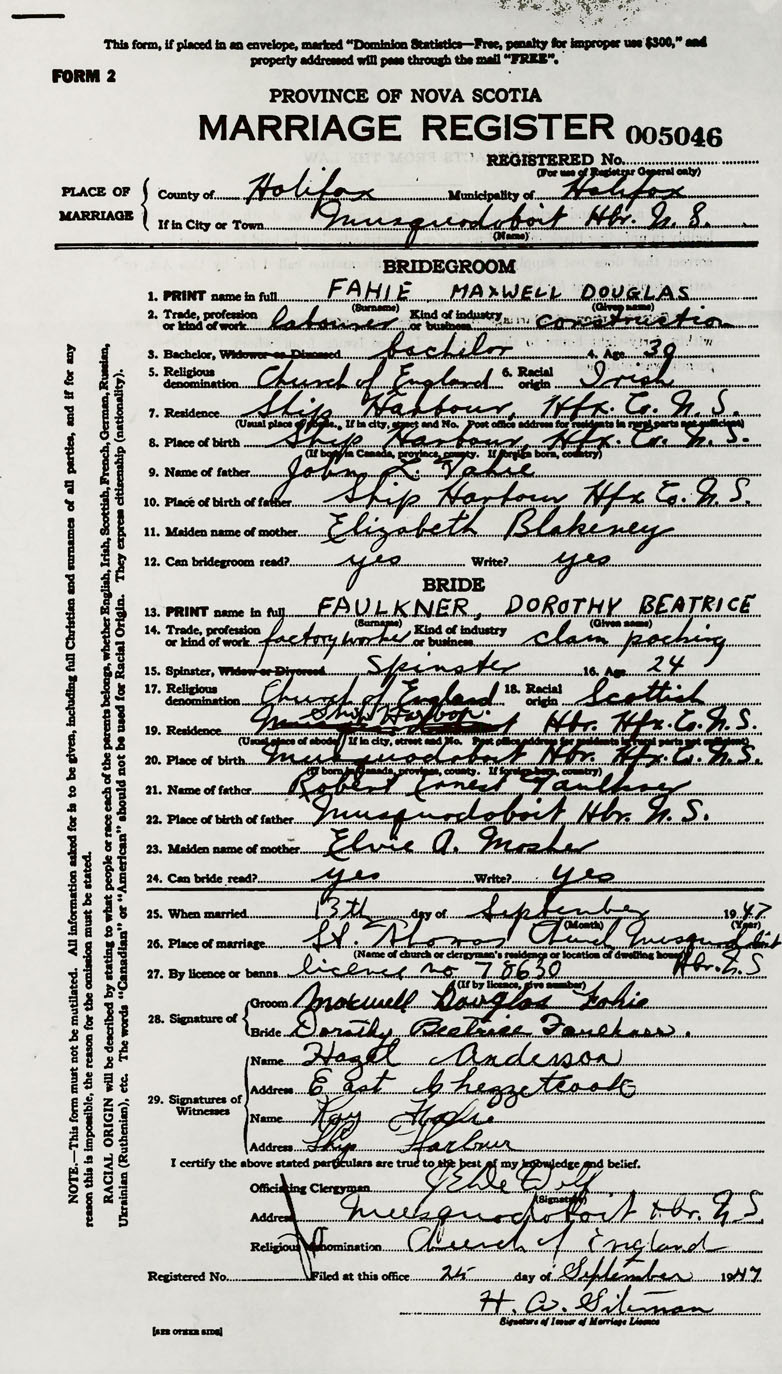 This form, if placed in an envelope, marked "Dominion Statistics—Free, penalty for improper use $300," and
properly addressed will pass through the mail "FREE".
FORM 2
PROVINCE OF NOVA SCOTIA
MARRIAGE REGISTER 005046
REGISTERED No.
(For use of Registrar General only)
PLACE OF MARRIAGE
County of Halifax Municipality of Halifax
If in City or Town Musquodoboit Hbr. N. S.
(Name)
BRIDEGROOM
1. PRINT name in full FAHIE MAXWELL DOUGLAS
(Surname) (Given name)
2. Trade, profession or kind of work labourer Kind of industry or business construction
3. Bachelor, Widower or Divorced bachelor 4. Age 39
5. Religious denomination Church of England 6. Racial origin Irish
7. Residence Ship Harbour, Hfx. Co. N. S.
(Usual place of abode. If in city, street and No. Post office address for residents in rural parts not sufficient)
8. Place of birth Ship Harbour, Hfx. Co. N. S.
(If born in Canada, province, county. If foreign born, country)
9. Name of father John L. Fahie
10. Place of birth of father Ship Harbour Hfx Co. N. S.
11. Maiden name of mother Elizabeth Blakeney
12. Can bridegroom read? yes Write? yes
BRIDE
13. PRINT name in full FAULKNER, DOROTHY BEATRICE
(Surname) (Given name)
14. Trade, profession or kind of work factory worker Kind of industry or business clam packing
15. Spinster, Widow or Divorced Spinster 16. Age 24
17. Religious denomination Church of England 18. Racial origin Scottish
19. Residence Ship Harbor Hbr. Hfx. Co. N. S.
(Usual place of abode. If in city, street and No. Post office address for residents in rural parts not sufficient)
20. Place of birth Musquodoboit Hbr. Hfx. Co. N. S.
(If born in Canada, province, county. If foreign born, country)
21. Name of father Robert Ernest Faulkner
22. Place of birth of father Musquodoboit Hbr. N. S.
23. Maiden name of mother Elvie A. Mosher
24. Can bride read? yes Write? yes
25. When married 13th day of September 1947
(Month) (Year)
26. Place of marriage St. Thomas Church Musquodoboit
(Name of church or clergyman's residence or location of dwelling house) Hbr. N. S
27. By licence or banns licence no 78630
(If by licence, give number)
28. Signature of
Groom Maxwell Douglas Fahie
Bride Dorothy Beatrice Faulkner.
29. Signatures of Witnesses
Name Hazel Anderson
Address East Chezzetcook
Name Ray Fahie
Address Ship Harbour
I certify the above stated particulars are true to the best of my knowledge and belief.
Officiating Clergyman
(Signature)
Address Musquodoboit Hbr. N.S.
Religious denomination Church of England
Registered No. Filed at this office 25 day of September 1947
H. A. Siteman
Signature of Issuer of Marriage Licence
[SEE OTHER SIDE]
NOTE.—This form must not be mutilated. All information asked for is to be given, including full Christian and surnames of all parties, and if for any
reason this is impossible, the reason for the omission must be stated.
RACIAL ORIGIN will be described by stating to what people or race each of the parents belongs, whether English, Irish, Scottish, French, German, Russian,
Ukrainian (Ruthenian), etc. The words "Canadian" or "American" should not be used for Racial Origin. They express citizenship (nationality).